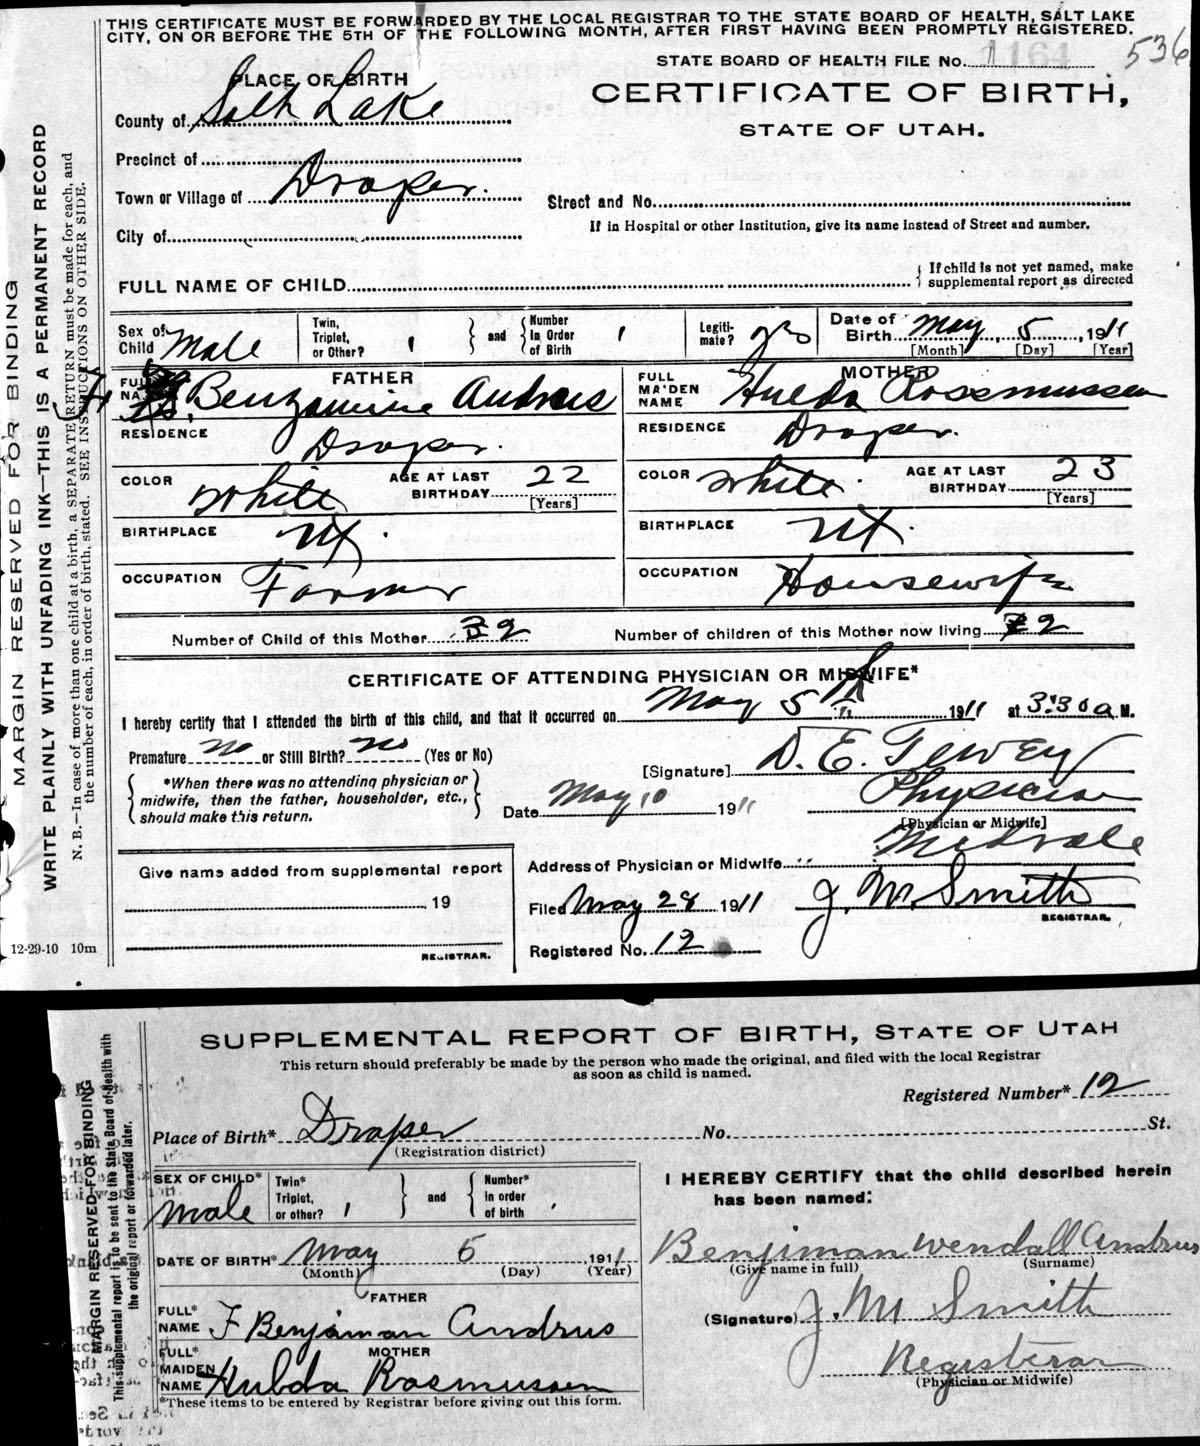 THIS CERTIFICATE MUST BE FORWARDED BY THE LOCAL REGISTRAR TO THE STATE BOARD OF HEALTH, SALT LAKE
CITY, ON OR BEFORE THE 5TH OF THE FOLLOWING MONTH, AFTER FIRST HAVING BEEN PROMPTLY REGISTERED.
STATE BOARD OF HEALTH FILE No. 1164 536
PLACE OF BIRTH
CERTIFICATE OF BIRTH,
County of Salt Lake
STATE OF UTAH.
Precinct of
Town or Village of Draper.
Street and No.
City of
If in Hospital or other Institution, give its name instead of Street and number.
FULL NAME OF CHILD { If child is not yet named, make
supplemental report as directed
Sex of Child Male
Twin, Triplet, or Other? 1 } and { Number in Order of Birth 1
Legiti-mate? yes
Date of Birth May, 5, 1911
[Month] [Day] [Year]
FATHER
FULL NAME F. Benjamine Andrus
RESIDENCE Draper.
COLOR White
AGE AT LAST BIRTHDAY 22
[Years]
BIRTHPLACE Ut.
OCCUPATION Farmer
MOTHER
FULL MAIDEN NAME Hulda Rossmussen
RESIDENCE Draper.
COLOR White.
AGE AT LAST BIRTHDAY 23
[Years]
BIRTHPLACE Ut.
OCCUPATION Housewife
Number of Child of this Mother 2 Number of children of this Mother now living 2
CERTIFICATE OF ATTENDING PHYSICIAN OR MIDWIFE*
I hereby certify that I attended the birth of this child, and that it occurred on May 5 1911 at 3:30 a M.
Premature no or Still Birth? no (Yes or No)
[Signature] D. E. Tewey
{ *When there was no attending physician or
midwife, then the father, householder, etc.,
should make this return. }
Date May 10 1911 Physician
[Physician or Midwife]
Address of Physician or Midwife Midvale
Give name added from supplemental report
19
REGISTRAR.
Filed May 28 1911 J. M. Smith
REGISTRAR.
Registered No. 12
12-29-10 10m
MARGIN RESERVED FOR BINDING
WRITE PLAINLY WITH UNFADING INK—THIS IS A PERMANENT RECORD
N. B.—In case of more than one child at a birth, a SEPARATE RETURN must be made for each, and
the number of each, in order of birth, stated. SEE INSTRUCTIONS ON OTHER SIDE.
SUPPLEMENTAL REPORT OF BIRTH, STATE OF UTAH
This return should preferably be made by the person who made the original, and filed with the local Registrar
as soon as child is named.
Registered Number* 12
Place of Birth* Draper No. St.
(Registration district)
SEX OF CHILD* Male
Twin* Triplet, or other? 1 } and { Number* in order of birth
DATE OF BIRTH* May 5 1911
(Month) (Day) (Year)
FATHER
FULL* NAME F Benjaman Andrus
MOTHER
FULL* MAIDEN NAME Hulda Rasmussen
*These items to be entered by Registrar before giving out this form.
I HEREBY CERTIFY that the child described herein
has been named:
Benjiman Wendall Andrus
(Give name in full) (Surname)
(Signature) J. M Smith
Registerar
(Physician or Midwife)
MARGIN RESERVED FOR BINDING
This supplemental report is to be sent to the State Board of Health with
the original report or forwarded later.